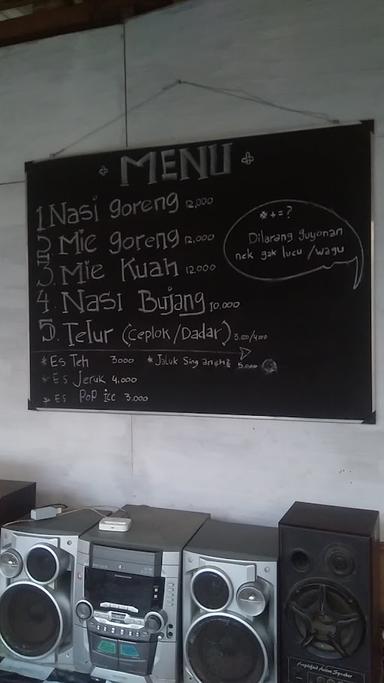 MENU
1. Nasi goreng 12,000
2. Mie goreng 12.000
3. Mie Kuah 12.000
4. Nasi Bujang 10.000
5. Telur (Ceplok/Dadar)
* Es Teh 3000
* Es Jeruk 4.000
* Es Pop Ice 3.000
* Jaluk Sing aneh2 5.000
* + = ?
Dilarang guyonan
nek gak lucu /wagu
Amplified Active Speaker